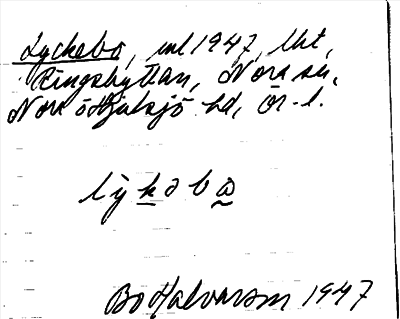 Lyckebo, enl 1947, lht,
Ringshyttan, Nora sn,
Nora o Hjulsjö hd, Ör. l.
lÿkəbω
Bo Halvarson 1947